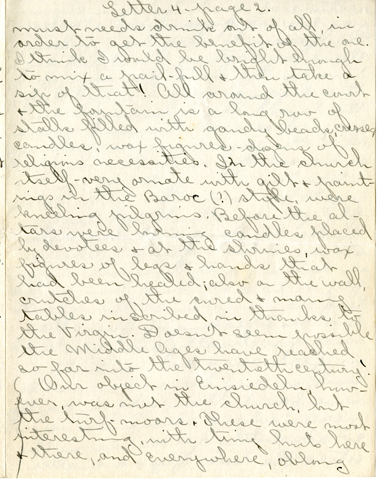 Letter 4 - page 2.
must needs drink out of all, in
order to get the benefit of the one.
I think I would be bright enough
to mix a pail-full & then take a
sip of that! All around the court
& the fountain is a long row of
stalls filled with gaudy beads, crosses,
candles, wax figures - dozens of
religious necessities. In the church
itself - very ornate with gilt & paint-
ings in the Baroc (?) style, were
kneeling pilgrims. Before the al-
tars were burning candles placed
by devotees & at the shrines, wax
figures of legs & hands that
had been healed; also on the wall,
crutches of the cured & many
tables inscribed in thanks to
the Virgin. Doesn't seem possible
the Middle Ages have reached
so far into the twentieth century!
Our object in Einsiedeln, how-
ever, was not the church, but
the turf-moors. These were most
interesting, with tiny huts here
& there, and everywhere, oblong